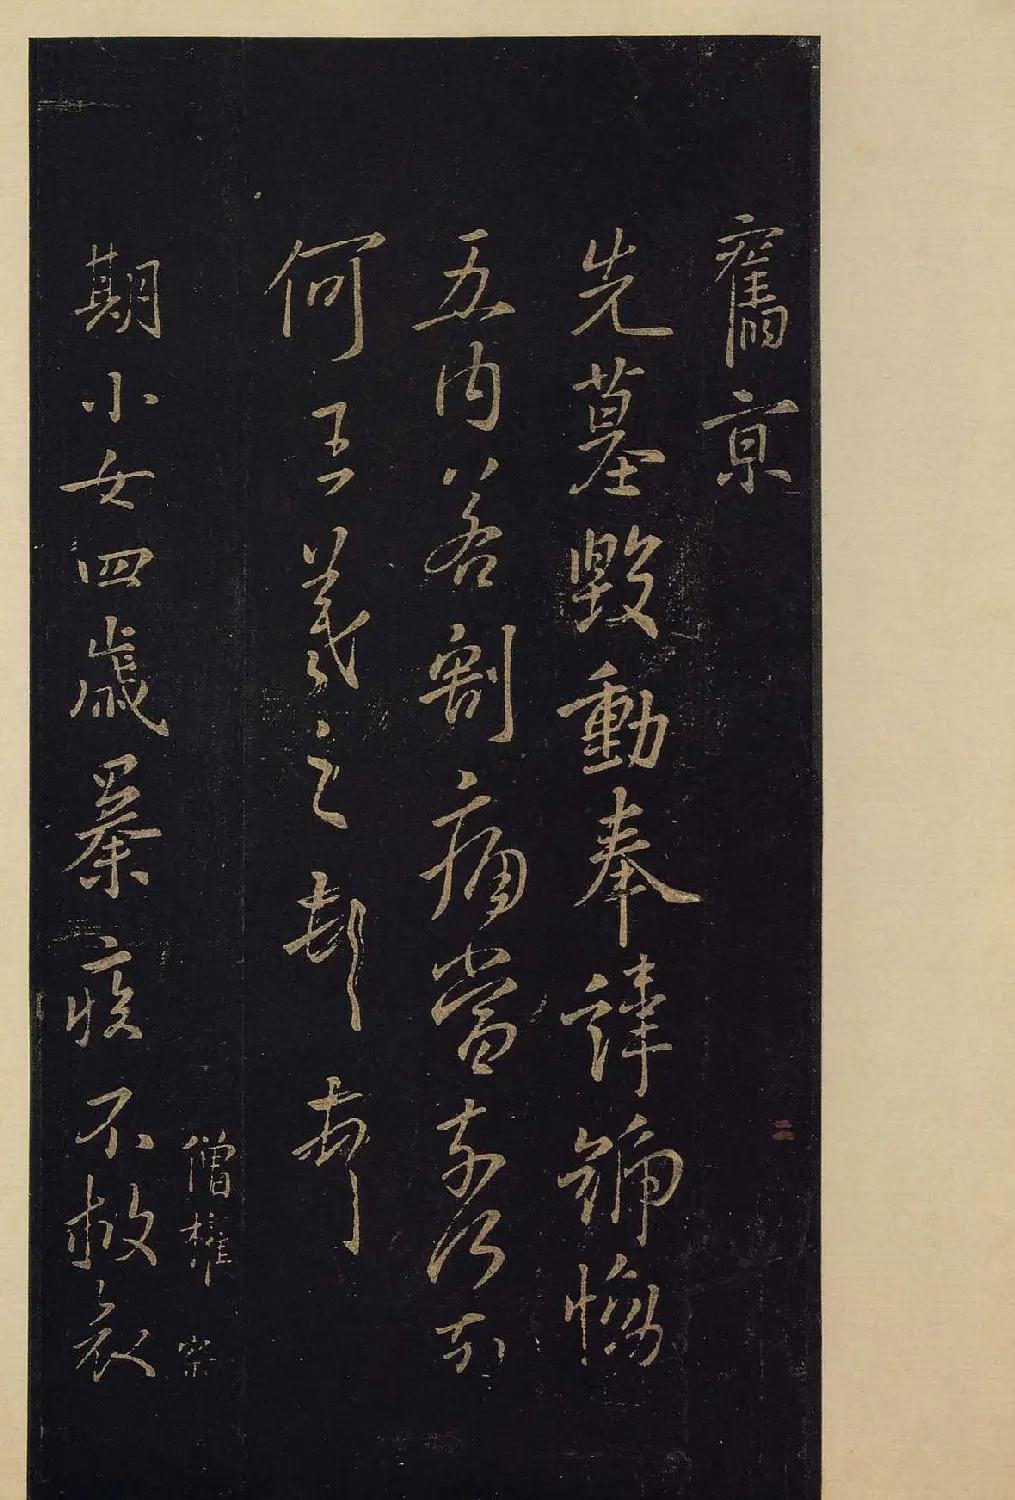 舊京
先墓毀動奉諱號慟
五內若割痛當奈何奈
何王羲之頓首
僧權 察
期小女四歲暴疾不救哀